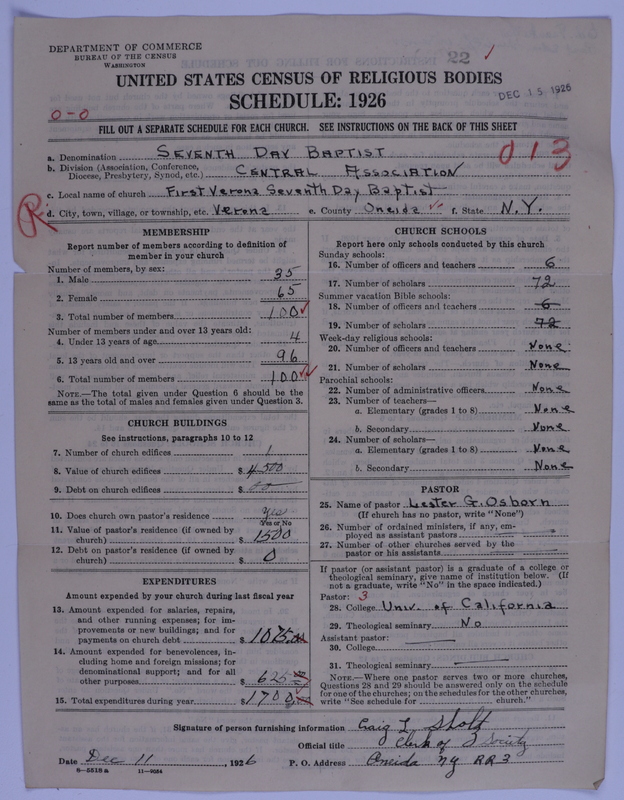 DEPARTMENT OF COMMERCE
BUREAU OF THE CENSUS
WASHINGTON
22 1
UNITED STATES CENSUS OF RELIGIOUS BODIES
SCHEDULE: 1926
DEC 15 1926
0-0
FILL OUT A SEPARATE SCHEDULE FOR EACH CHURCH. SEE INSTRUCTIONS ON THE BACK OF THIS SHEET
a. Denomination SEVENTH DAY BAPTIST
013
b. Division (Association, Conference,
Diocese, Presbytery, Synod, etc.) CENTRAL ASSOCIATION
c. Local name of church First Verona Seventh Day Baptist
R
d. City, town, village, or township, etc. Verona e. County Oneida f. State N.Y.
MEMBERSHIP
Report number of members according to definition of
member in your church
Number of members, by sex:
1. Male 35
2. Female 65
3. Total number of members 100
Number of members under and over 13 years old:
4. Under 13 years of age 4
5. 13 years old and over 96
6. Total number of members 100
NOTE.—The total given under Question 6 should be
same as the total of males and females given under Question 3.
CHURCH BUILDINGS
See instructions, paragraphs 10 to 12
7. Number of church edifices 1
8. Value of church edifices $ 4500
9. Debt on church edifices $
10. Does church own pastor's residence Yes
Yes or No
11. Value of pastor's residence (if owned by
church) $ 1500
12. Debt on pastor's residence (if owned by
church) $ 0
EXPENDITURES
Amount expended by your church during last fiscal year
13. Amount expended for salaries, repairs,
and other running expenses; for im-
provements or new buildings; and for
payments on church debt $ 1075
14. Amount expended for benevolences, in-
cluding home and foreign missions; for
denominational support; and for all
other purposes $ 625
15. Total expenditures during year $ 1700
CHURCH SCHOOLS
Report here only schools conducted by this church
Sunday schools:
16. Number of officers and teachers 6
17. Number of scholars 72
Summer vacation Bible schools:
18. Number of officers and teachers 6
19. Number of scholars 72
Week-day religious schools:
20. Number of officers and teachers None
21. Number of scholars None
Parochial schools:
22. Number of administrative officers None
23. Number of teachers—
a. Elementary (grades 1 to 8) None
b. Secondary None
24. Number of scholars—
a. Elementary (grades 1 to 8) None
b. Secondary None
PASTOR
25. Name of pastor Lester G. Osborn
(If church has no pastor, write "None")
26. Number of ordained ministers, if any, em-
ployed as assistant pastors
27. Number of other churches served by the
pastor or his assistants
If pastor (or assistant pastor) is a graduate of a college or
theological seminary, give name of institution below. (If
not a graduate, write "No" in the space indicated.)
Pastor: 3
28. College Univ. of California
29. Theological seminary No
Assistant pastor:
30. College
31. Theological seminary
NOTE.—Where one pastor serves two or more churches,
Questions 28 and 29 should be answered only on the schedule
for one of the churches; on the schedules for the other churches,
write "See schedule for church."
Signature of person furnishing information Craig L Sholtz
Official title Clerk of Society
Date Dec 11, 1926 P. O. Address Oneida NY RR 3
8-5518 a 11-9054